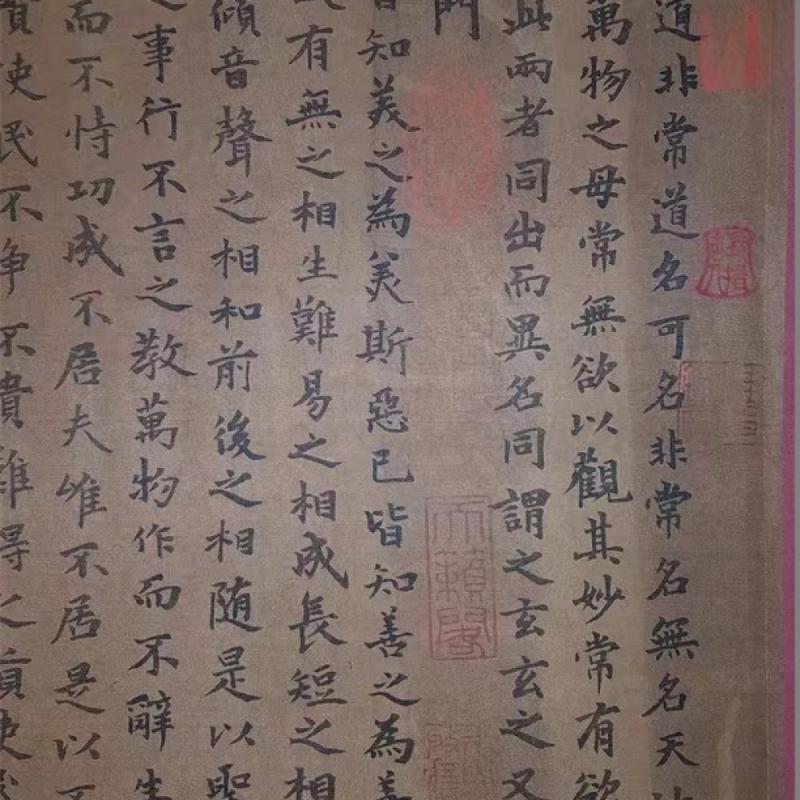 道非常道名可名非常名無名天
萬物之母常無欲以觀其妙常有欲
此兩者同出而異名同謂之玄玄之又
門
皆知美之為美斯惡已皆知善之為善
有無之相生難易之相成長短之相
傾音聲之相和前後之相随是以聖
之事行不言之教萬物作而不辭生
而不恃功成不居夫唯不居是以不
賢使民不争不貴難得之貨使民
天籟閣